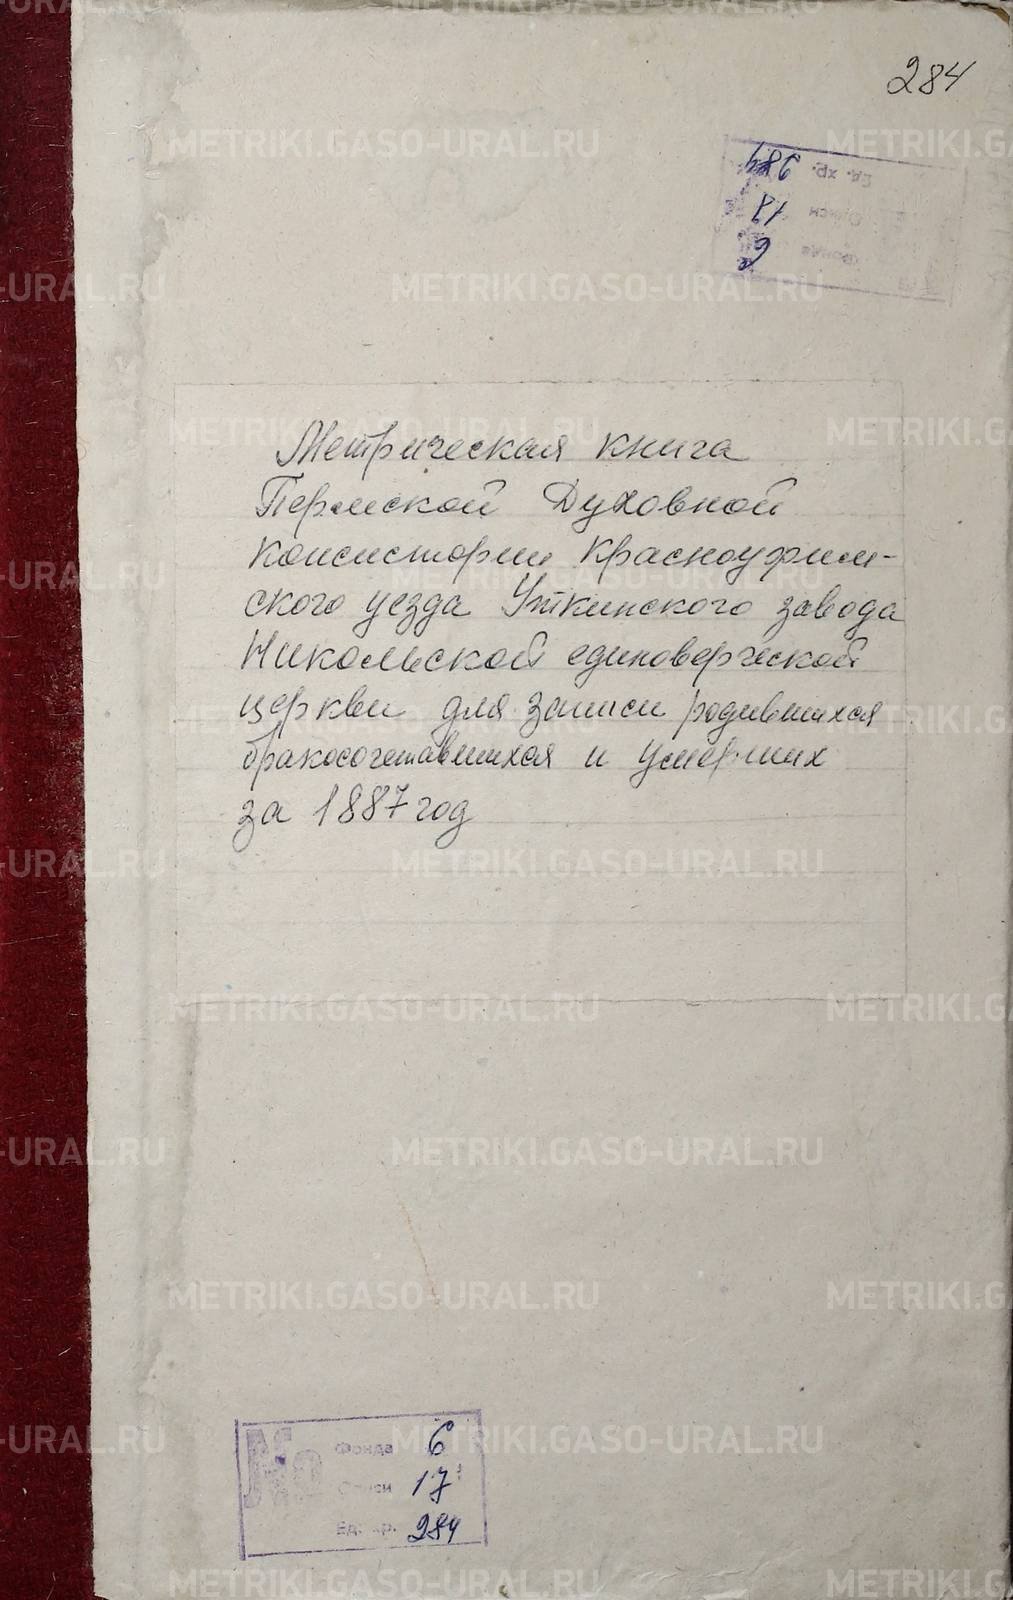 284
Ед. хр. 284
Описи 17
Фонда 6
Метрическая книга
Пермской Духовной
консистории Красноуфим-
ского уезда Уткинского завода
Никольской единоверческой
церкви для записи родившихся
бракосочетавшихся и умерших
за 1887 год
№ Фонда 6
Описи 17
Ед. хр. 284
METRIKI.GASO-URAL.RU